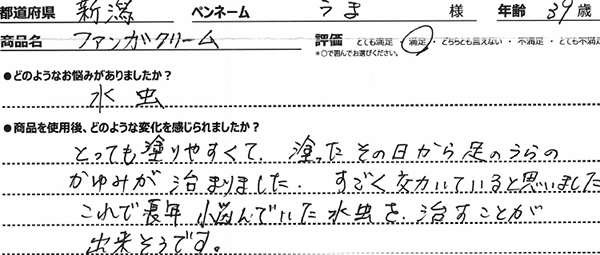 都道府県 新潟 ペンネーム うま 様 年齢 39歳
商品名 ファンガクリーム 評価 とても満足・満足・どちらとも言えない・不満足・とても不満足
*○で囲んでお選びください。
●どのようなお悩みがありましたか?
水虫
●商品を使用後、どのような変化を感じられましたか?
とっても塗りやすくて、塗ったその日から足のうらの
かゆみが治まりました。すごく効いていると思いました
これで長年悩んでいた水虫を治すことが
出来そうです。